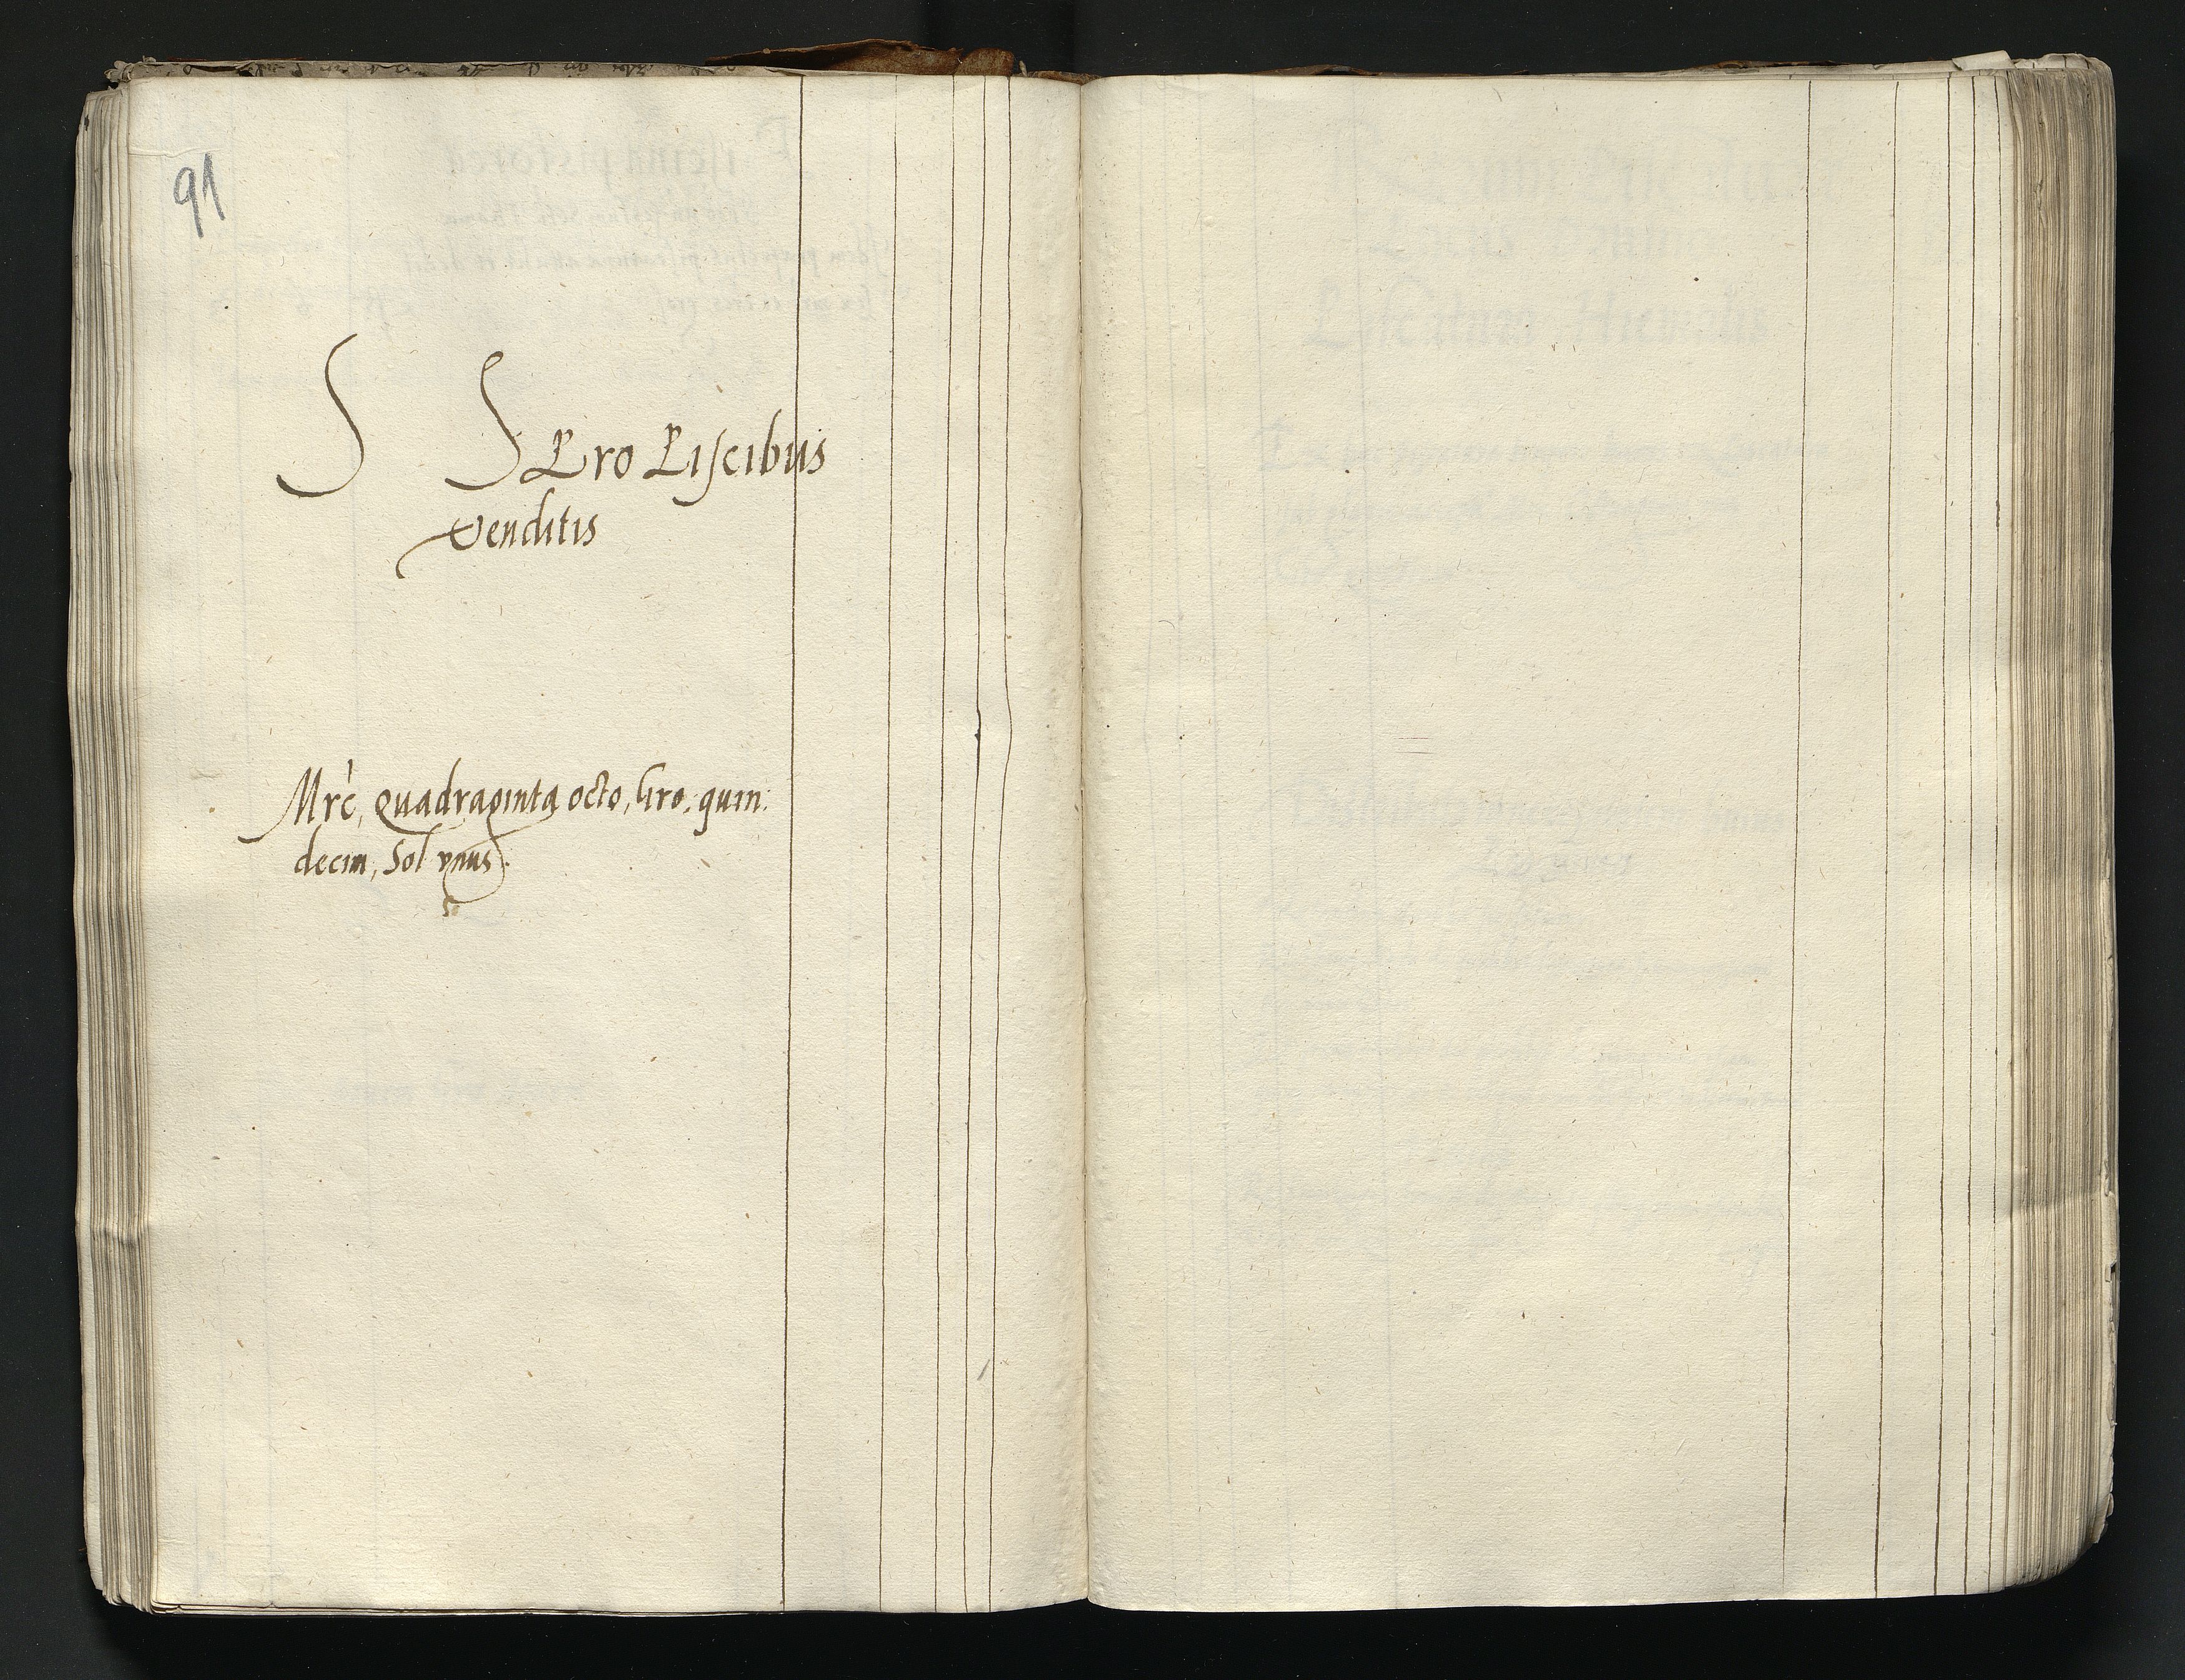 91
S S Pro Piscibus
venditis
Mrc, quadraginta octo, gro, quin:
decim, Sol vnus.